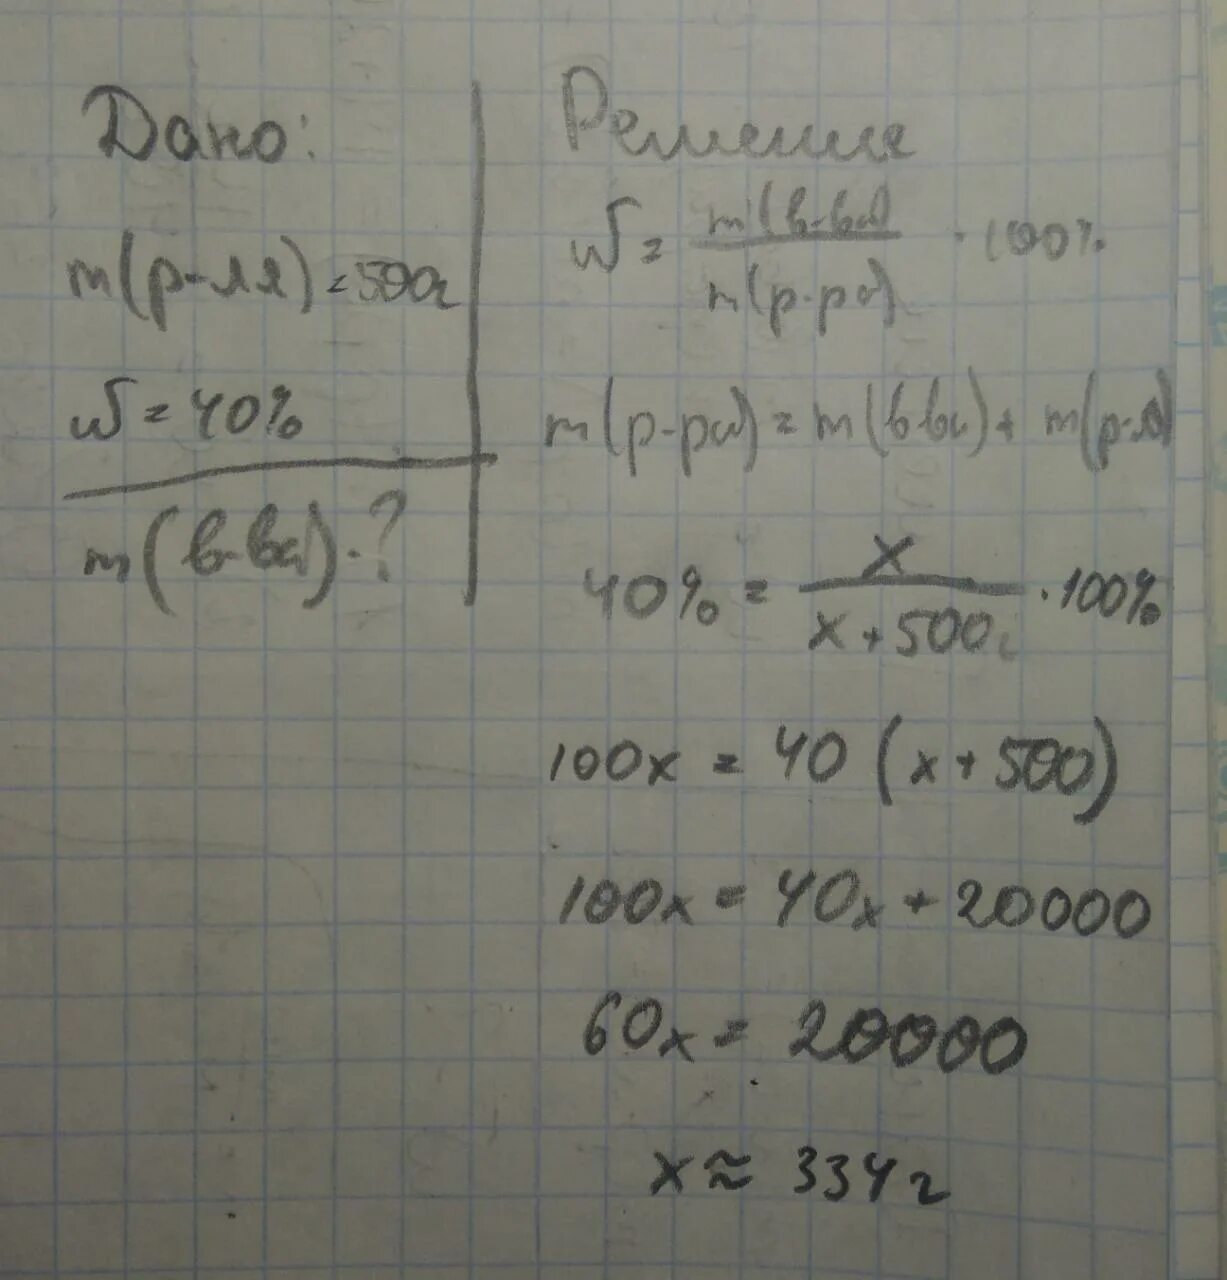 Дано:
m(р-ля) = 500г
ω = 40%
m(в-ва) - ?
Решение
ω = m(в-ва) / m(р-ра) · 100%
m(р-ра) = m(в-ва) + m(р-ля)
40% = x / x + 500г · 100%
100x = 40 (x + 500)
100x = 40x + 20000
60x = 20000
x ≈ 334г